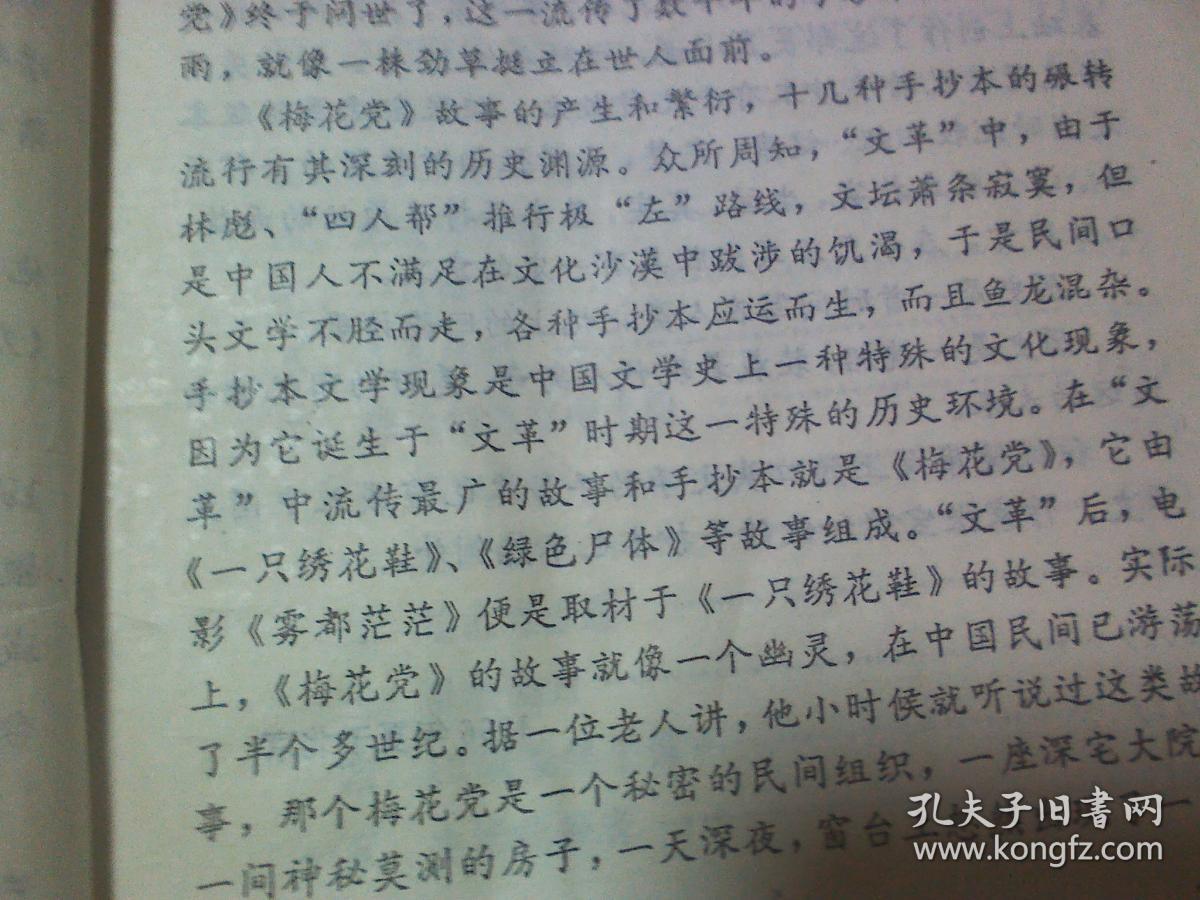 党》终于问世了，这一流传了数十年的
雨，就像一株劲草挺立在世人面前。
《梅花党》故事的产生和繁衍，十几种手抄本的辗转
流行有其深刻的历史渊源。众所周知，“文革”中，由于
林彪、“四人帮”推行极“左”路线，文坛萧条寂寞，但
是中国人不满足在文化沙漠中跋涉的饥渴，于是民间口
头文学不胫而走，各种手抄本应运而生，而且鱼龙混杂。
手抄本文学现象是中国文学史上一种特殊的文化现象，
因为它诞生于“文革”时期这一特殊的历史环境。在“文
革”中流传最广的故事和手抄本就是《梅花党》，它由
《一只绣花鞋》、《绿色尸体》等故事组成。“文革”后，电
影《雾都茫茫》便是取材于《一只绣花鞋》的故事。实际
上，《梅花党》的故事就像一个幽灵，在中国民间已游荡
了半个多世纪。据一位老人讲，他小时候就听说过这类故
事，那个梅花党是一个秘密的民间组织，一座深宅大院
一间神秘莫测的房子，一天深夜，窗台
孔夫子旧书网
www.kongfz.com